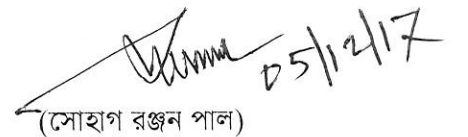 05/12/17
(সোহাগ রঞ্জন পাল)